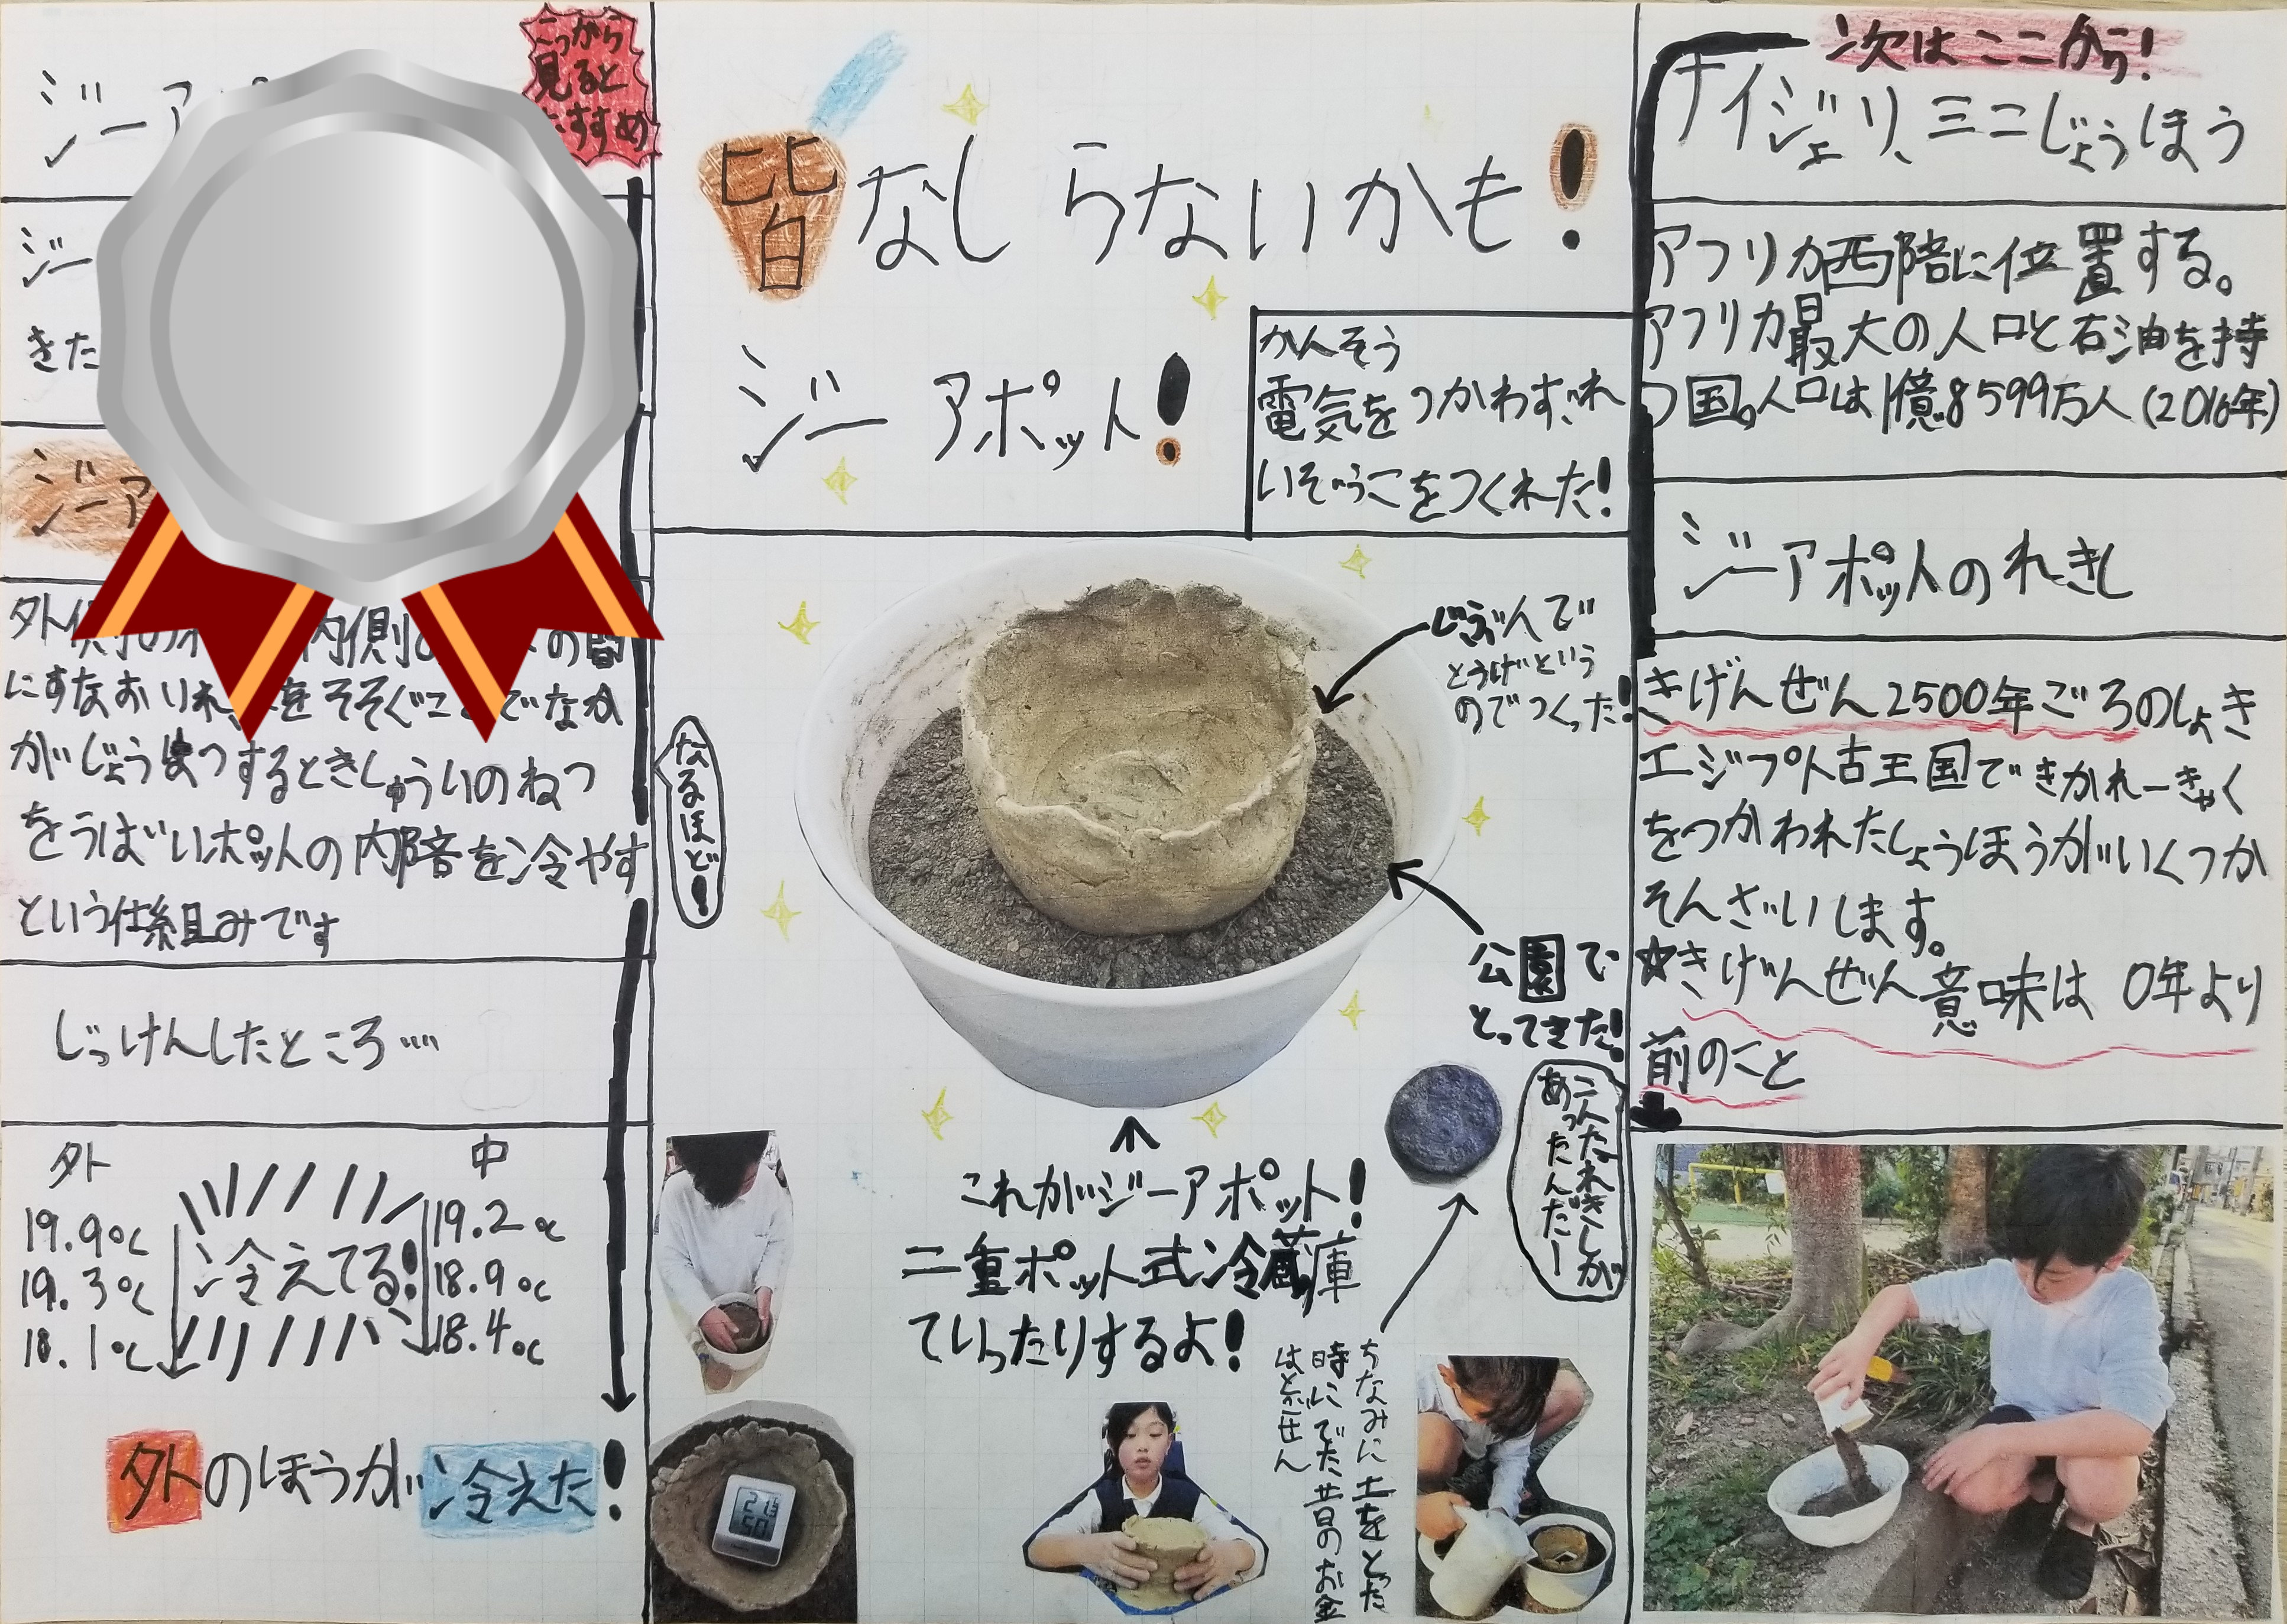 こっから
見ると
おすすめ
ジーア
ジー
きた
ジーア
外側の 内側 の間
にすなおいれ をそそぐことでなか
がじょうはつするときしゅういのねつ
をうばいポットの内部を冷やす
という仕組みです
なるほど!
じっけんしたところ….
外
19.9℃
19.3℃
18.1℃
冷えてる!
中
19.2℃
18.9℃
18.4℃
外のほうが冷えた!
皆なしらないかも!
ジーアポット!
かんそう
電気をつかわずれ
いぞうこをつくれた!
じぶんで
とうげいという
のでつくった!
公園で
とってきた!
こんなれきしが
あったんだー
これがジーアポット!
二重ポット式冷蔵庫
ていったりするよ!
ちなみに土をとった
時にでた昔のお金
はどせん
21.3
50
次はここから!
ナイジェリ、ミニじょうほう
アフリカ西部に位置する。
アフリカ最大の人口と石油を持
つ国。人口は1億8599万人(2016年)
ジーアポットのれきし
きげんぜん2500年ごろのしょき
エジプト古王国できかれーきゃく
をつかわれたしょうほうがいくつか
そんざいします。
☆きげんぜん意味は 0年より
前のこと